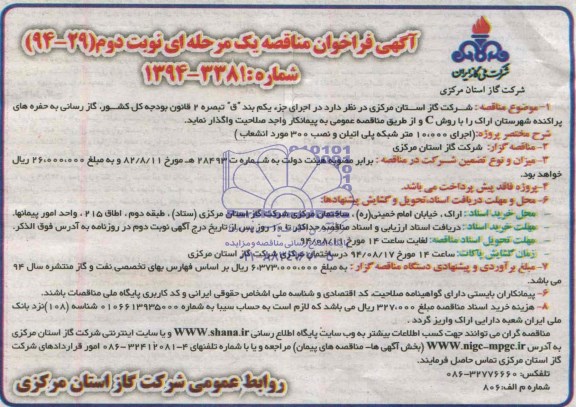 آگهی فراخوان مناقصه یک مرحله ای نوبت دوم(۲۹-۹۴)
شماره:۳۳۸۱-۱۳۹۴
شرکت ملی گاز ایران
شرکت گاز استان مرکزی
۱-موضوع مناقصه : شرکت گاز استان مرکزی در نظر دارد در اجرای جزء یکم بند "ق" تبصره ۲ قانون بودجه کل کشور، گاز رسانی به حفره های
پراکنده شهرستان اراک را با روش C و از طریق مناقصه عمومی به پیمانکار واجد صلاحیت واگذار نماید.
شرح مختصر پروژه:(اجرای ۱۰،۰۰۰ متر شبکه پلی اتیلن و نصب ۳۰۰ مورد انشعاب )
۲-مناقصه گزار: شرکت گاز استان مرکزی
۳-میزان و نوع تضمین شرکت در مناقصه : برابر مصوبه هیئت دولت به شماره ت ۲۸۴۹۳ هـ مورخ ۸۲/۸/۱۱ و به مبلغ ۲۶۰،۰۰۰،۰۰۰ ریال
خواهد بود.
۴-پروژه فاقد پیش پرداخت می باشد.
۶-محل و مهلت دریافت اسناد،تحویل و گشایش پیشنهادها:
محل خرید اسناد : اراک ، خیابان امام خمینی(ره)، ساختمان مرکزی شرکت گاز استان مرکزی (ستاد) ، طبقه دوم ، اطاق ۲۱۵ ، واحد امور پیمانها.
مهلت خرید اسناد : دریافت اسناد ارزیابی و اسناد مناقصه حداکثر تا ۱۰ روز پس از تاریخ درج آگهی نوبت دوم در روزنامه به آدرس فوق الذکر.
مهلت تحویل اسناد مناقصه: لغایت ساعت ۱۴ مورخ
زمان گشایش پاکات: ساعت ۱۴ مورخ ۹۴/۰۸/۱۷ درساختمان مرکزی شرکت گاز استان مرکزی
۷-مبلغ برآوردی و پیشنهادی دستگاه مناقصه گزار : به مبلغ ۶،۳۷۳،۰۰۰،۰۰۰ ریال بر اساس فهارس بهای تخصصی نفت و گاز منتشره سال ۹۴
می باشد.
۶-پیمانکاران بایستی دارای گواهینامه صلاحیت، کد اقتصادی و شناسه ملی اشخاص حقوقی ایرانی و کد کاربری پایگاه ملی مناقصات باشند.
۸- هزینه خرید اسناد مناقصه مبلغ ۳۲۷،۰۰۰ ریال می باشد که لازم است به حساب سیبا به شماره ۰۱۰۶۶۱۳۹۳۵۰۰۰ شناسه (۱۰۸)نزد بانک
ملی ایران شعبه دارایی اراک واریز گردد .
مناقصه گران می توانند جهت کسب اطلاعات بیشتر به وب سایت پایگاه اطلاع رسانی WWW.shana.ir و یا سایت اینترنتی شرکت گاز استان مرکزی
به آدرس WWW.nigc-mpgc.ir (بخش آگهی ها- مناقصه های پیمان) مراجعه و یا با شماره تلفنهای ۴-۳۲۴۱۲۰۸۱-۰۸۶ امور قراردادهای شرکت
گاز استان مرکزی تماس حاصل فرمایند.
تلفکس: ۳۲۷۷۶۶۶۰-۰۸۶
شماره م الف: ۸۰۶
روابط عمومی شرکت گاز استان مرکزی